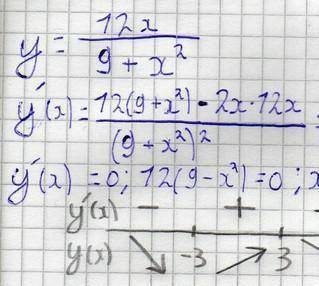 y = 12x / (9 + x²)
y'(x) = (12(9+x²) - 2x·12x) / (9+x²)² =
y'(x) = 0; 12(9-x²) = 0; x
y'(x) - + -
y(x) ↘ -3 ↗ 3 ↘